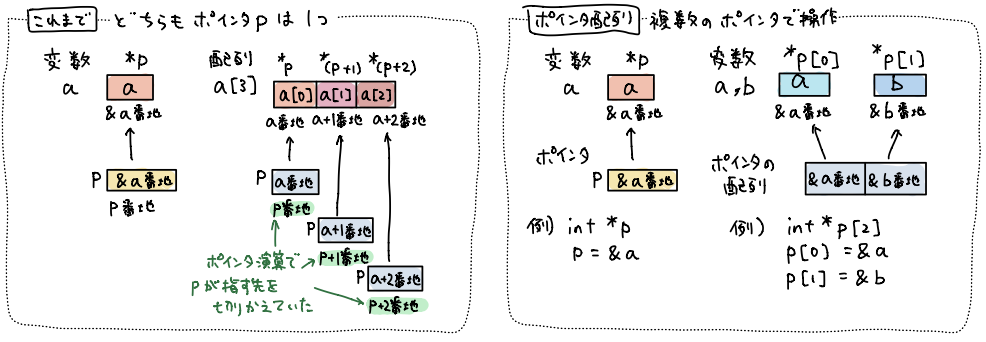 これまで どちらも ポインタ p は 1つ
変数 *p
a a
&a番地
p &a番地
p番地
配列 *p *(p+1) *(p+2)
a[3] a[0] a[1] a[2]
a番地 a+1番地 a+2番地
p a番地
p番地
p a+1番地
p+1番地
p a+2番地
p+2番地
ポインタ演算で
pが指す先を
切りかえていた
ポインタ配列 複数のポインタで操作
変数 *p
a a
&a番地
ポインタ
p &a番地
例) int *p
p = &a
変数 *p[0] *p[1]
a,b a b
&a番地 &b番地
ポインタの
配列 &a番地 &b番地
例) int *p[2]
p[0] = &a
p[1] = &b